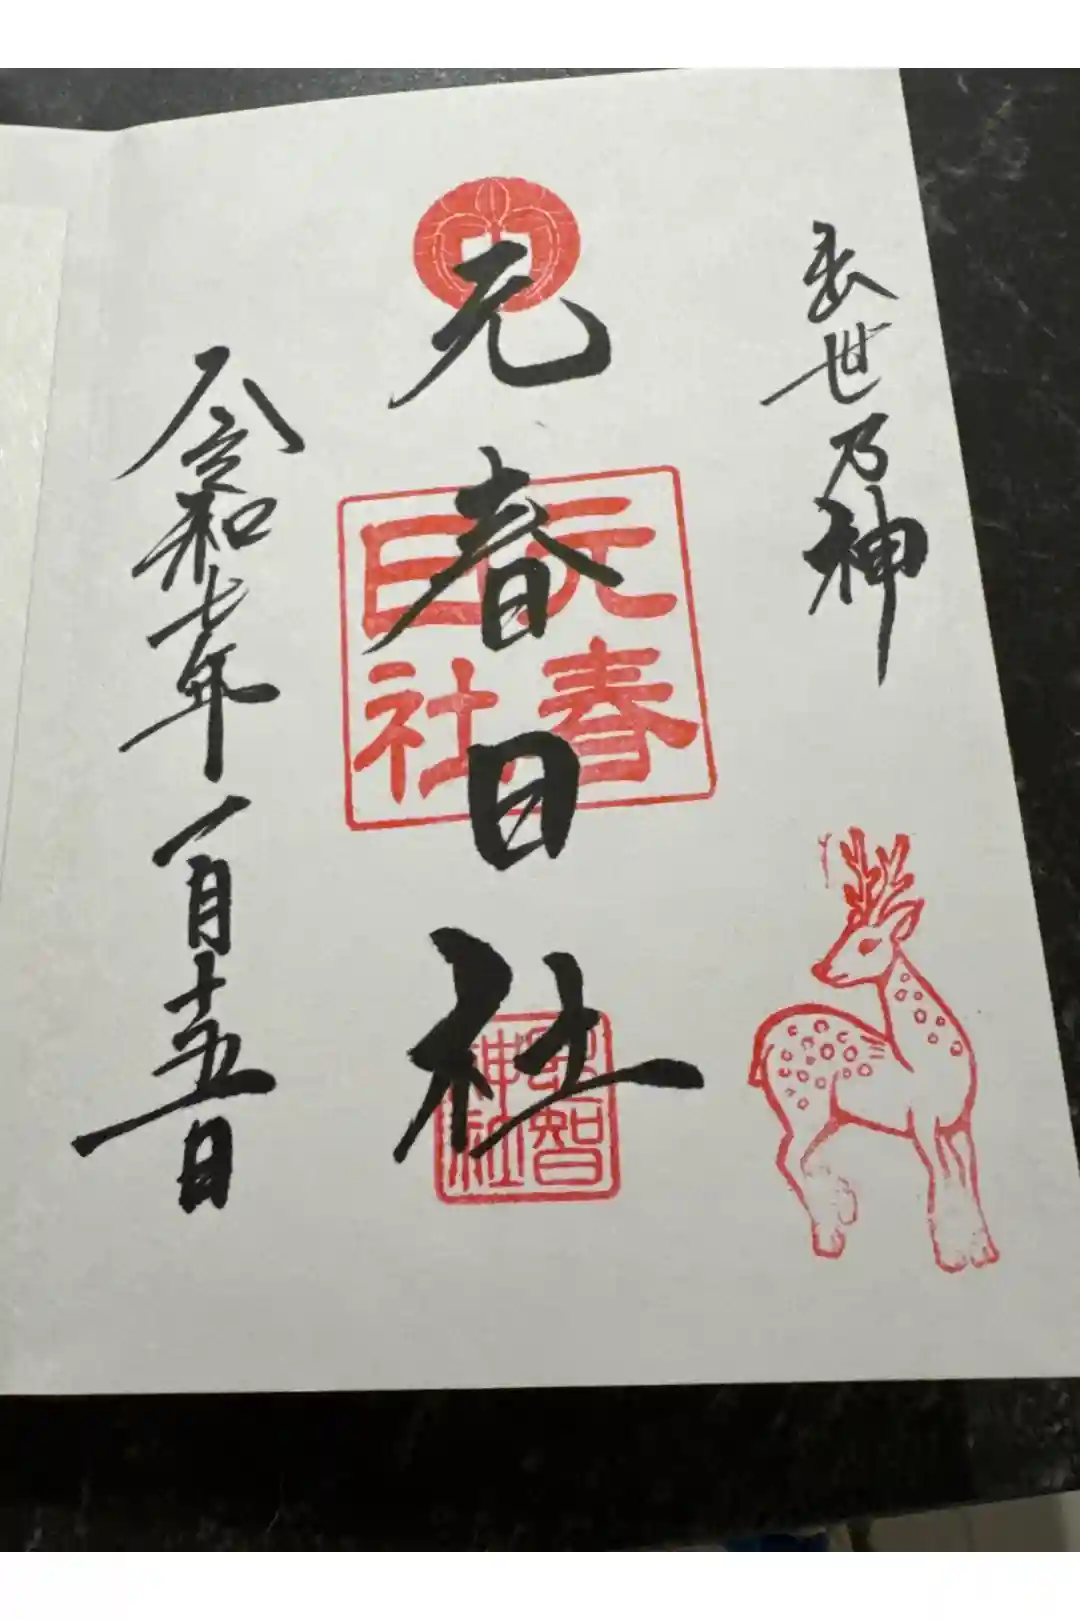 出世乃神
元春日社
元春
日社
神社
令和七年一月十五日